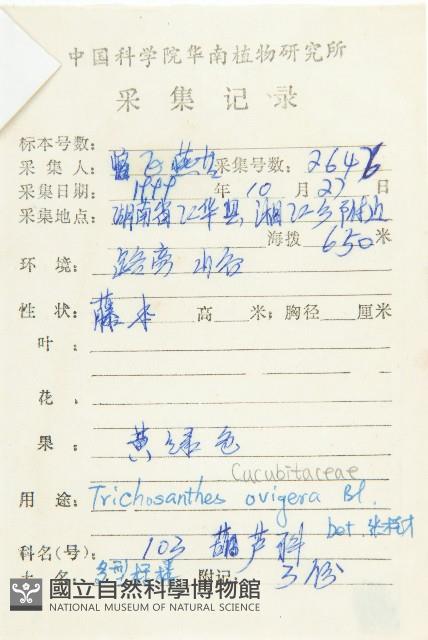 中国科学院华南植物研究所
采集记录
标本号数:
采集人: 曾飞燕 采集号数: 2646
采集日期: 1999 年 10 月 27 日
采集地点: 湖南省江华县, 湘江乡附近
海拨 650 米
环境: 路旁 山谷
性状: 藤本 高 米; 胸径 厘米
叶:
花,
果: 黄绿色
Cucubitaceae
用途: Trichosanthes ovigera Bl.
科名(号): 103 葫芦科
土名 附记: 3份
國立自然科學博物館
NATIONAL MUSEUM OF NATURAL SCIENCE